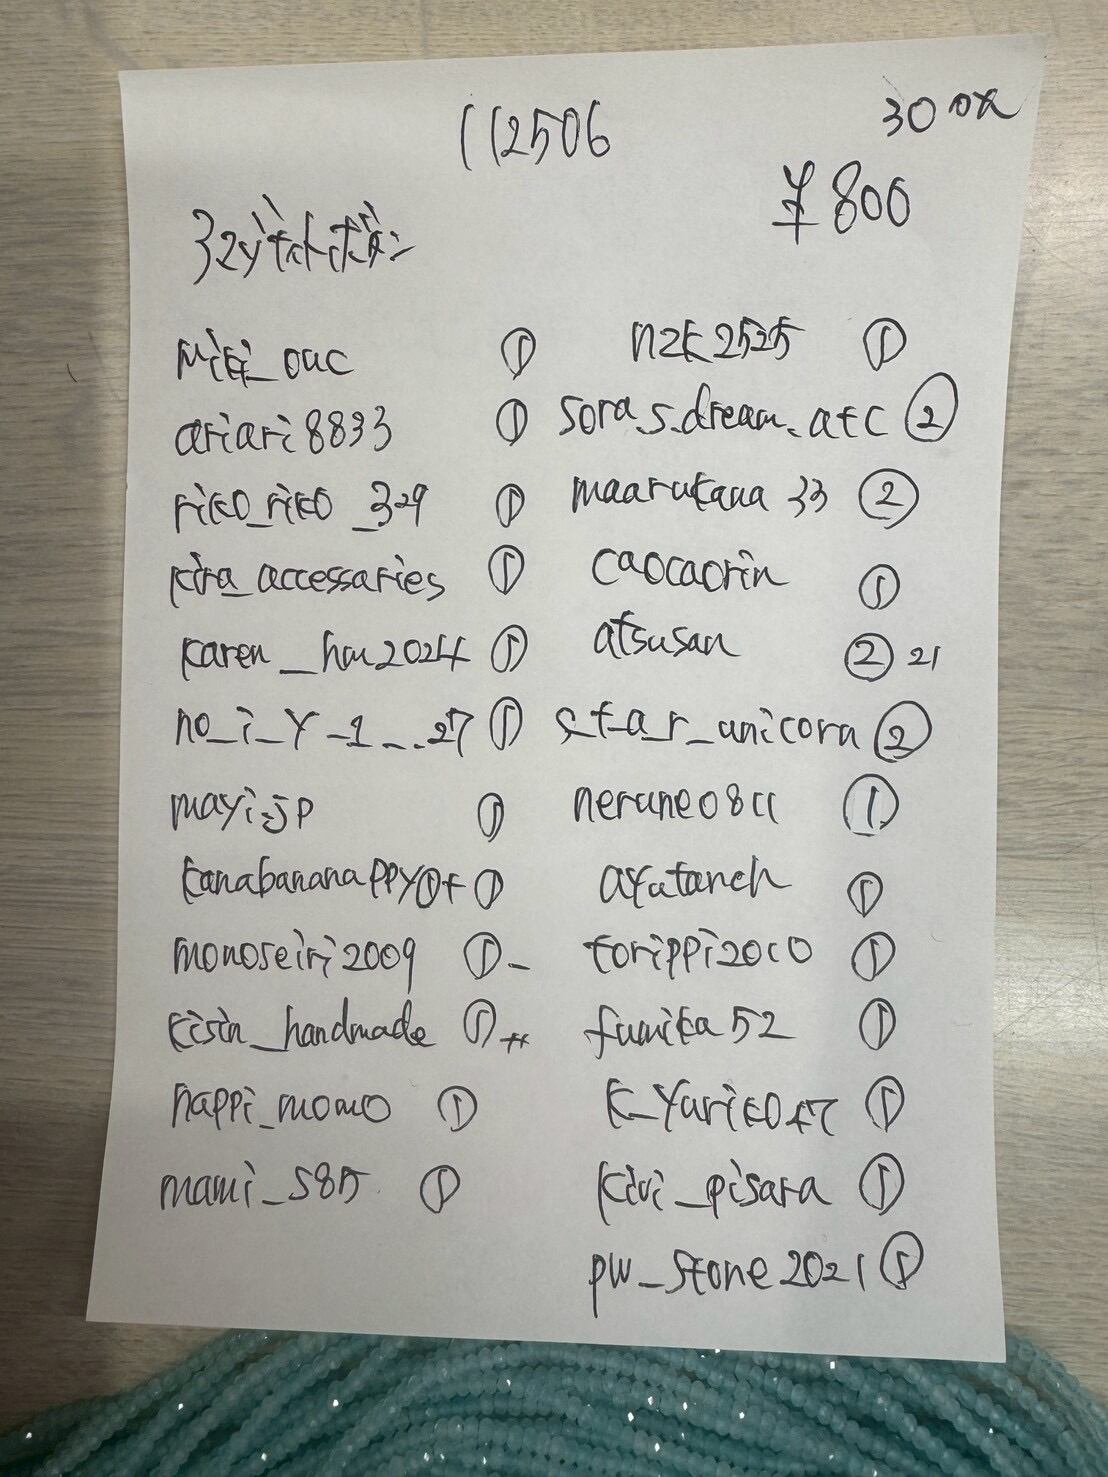 112506
30
¥800
miki_ouc ①
ariari8833 ①
riko_riko_329 ①
kira_accessaries ①
karen_hm2024 ①
no_i_Y_1_..27 ①
mayi.jp ①
kanabanana ①
monoseiri2009 ① -
kisin_handmade ①
nappi_momo ①
mami_585 ①
nzk2525 ①
sora.s.dream.atc ②
maarukana33 ②
caocaorin ①
atsusan ② 21
s_t_a_r_unicorn ②
nerune0811 ①
ayutaneh ①
torippi2010 ①
fumika52 ①
k_yuriko47 ①
kivi_pisara ①
pw_stone2021 ①